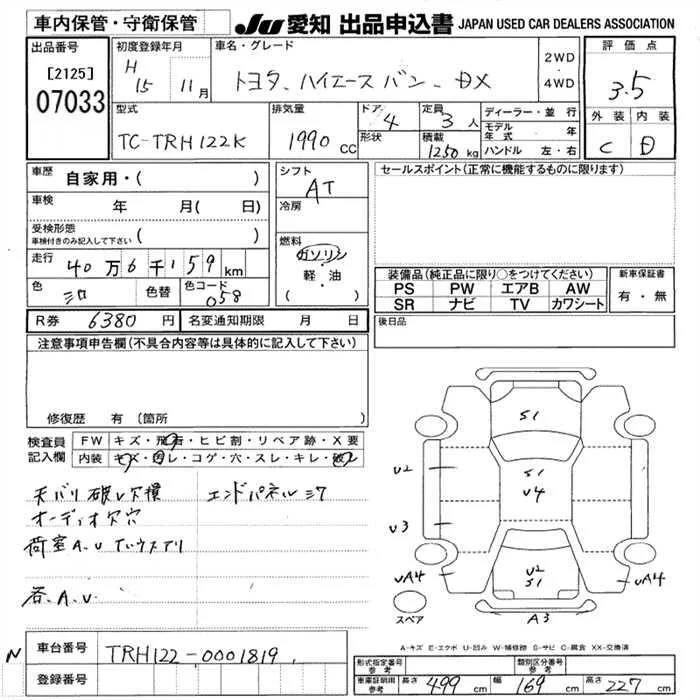 車内保管・守衛保管
JU 愛知 出品申込書 JAPAN USED CAR DEALERS ASSOCIATION
出品番号
[2125]
07033
初度登録年月
H 15 11月
車名・グレード
トヨタ ハイエース バン DX
2WD
・
4WD
評価点
3.5
型式
TC-TRH122K
排気量
1990 CC
ドア 4
形状
定員 3 人
積載 1250 kg
ディーラー・並行
モデル年式 年
ハンドル 左・右
外装 内装
C D
車歴 自家用・( )
車検 年 月(日)
受検形態
車検付きのみ記入して下さい ( )
走行 40万6千159 km
色 シロ 色替 色コード 058
シフト
AT
冷房
燃料
ガソリン
・
軽・油
( )
セールスポイント(正常に機能するものに限ります)
装備品(純正品に限り○をつけてください)
PS PW エアB AW
SR ナビ TV カワシート
新車保証書
有・無
後日品
R券 6380円 名変通知期限 月 日
注意事項申告欄(不具合内容等は具体的に記入して下さい)
修復歴 有(箇所
検査員
記入欄
FW キズ・飛石・ヒビ割・リペア跡・X要
内装 キズ・凹レ・コゲ・穴・スレ・キレ・破レ
天バリ破レ欠損 エンドパネル
オーディオ欠穴
荷室A.U
各A.U
S1
S1
U4
U2
S1
U2
U3
UA4
UA4
A3
スペア
A-キズ E-エクボ U-凹み W-補修跡 S-サビ C-腐食 XX-交換済
N 車台番号 TRH122-0001819
登録番号
形式指定番号
参考
類別区分番号
参考
車庫証明用
参考
長さ 499 cm 幅 169 cm 高さ 227 cm